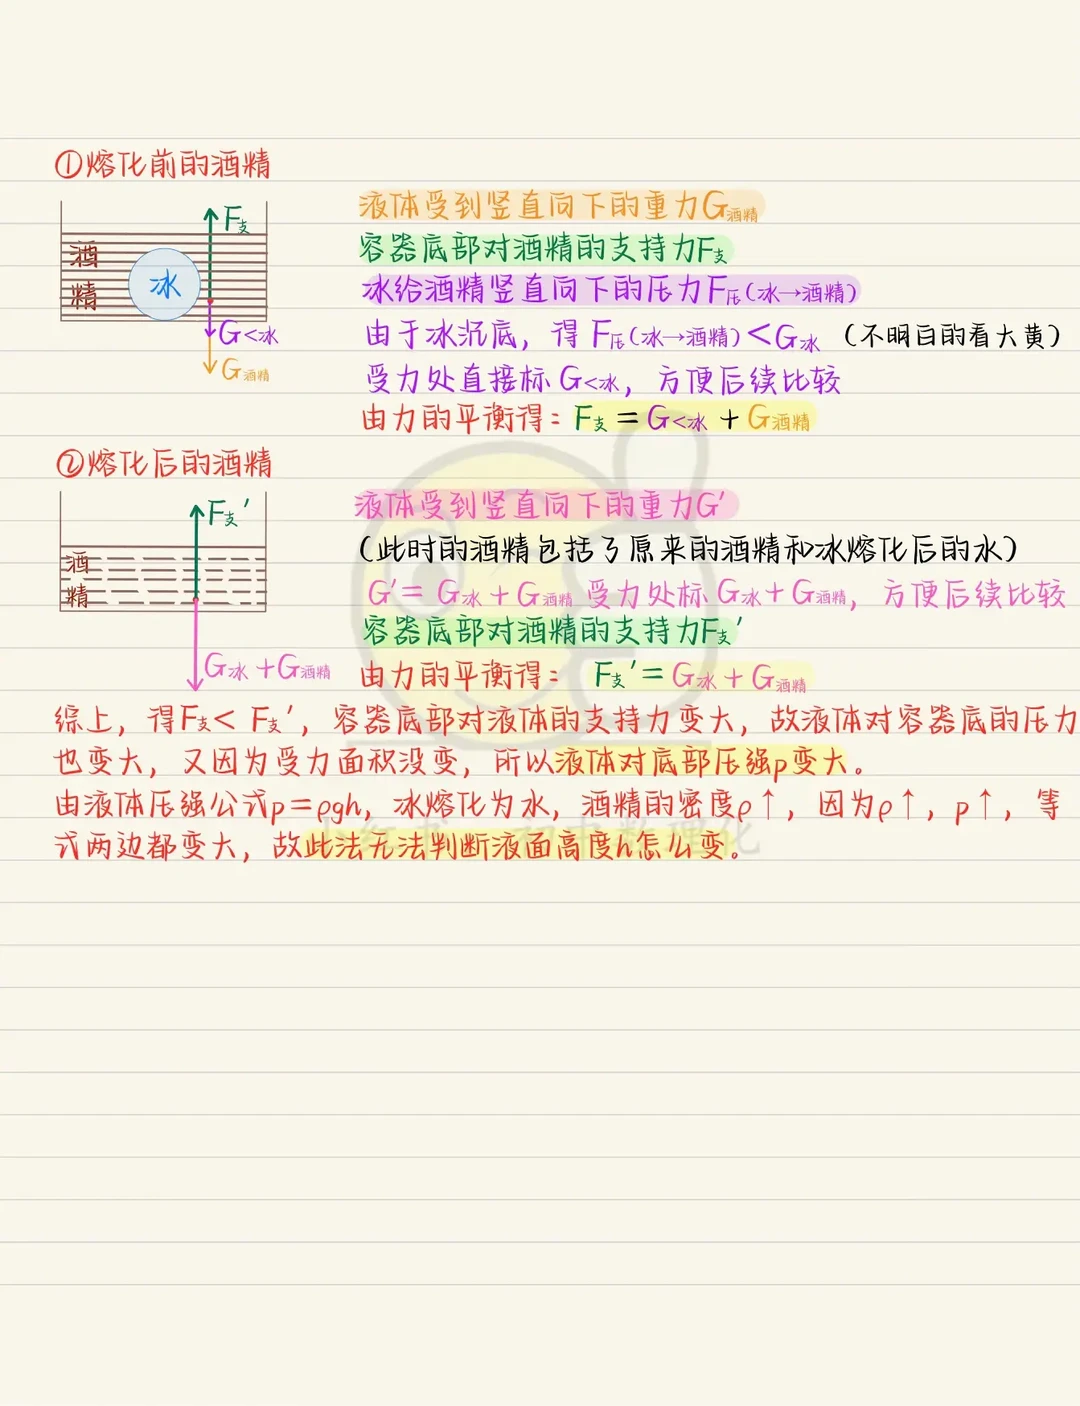 ①熔化前的酒精
F支
酒精
冰
G<冰
G酒精
液体受到竖直向下的重力G酒精
容器底部对酒精的支持力F支
冰给酒精竖直向下的压力F压(冰→酒精)
由于冰沉底，得 F压(冰→酒精)<G冰 (不明白的看大黄)
受力处直接标 G<冰，方便后续比较
由力的平衡得：F支=G<冰+G酒精
②熔化后的酒精
F支′
酒精
G冰+G酒精
液体受到竖直向下的重力G′
(此时的酒精包括了原来的酒精和冰熔化后的水)
G′=G冰+G酒精 受力处标 G冰+G酒精，方便后续比较
容器底部对酒精的支持力F支′
由力的平衡得： F支′=G冰+G酒精
综上，得F支< F支′，容器底部对液体的支持力变大，故液体对容器底的压力
也变大，又因为受力面积没变，所以液体对底部压强p变大。
由液体压强公式p=ρgh，冰熔化为水，酒精的密度ρ↑，因为ρ↑，p↑，等
式两边都变大，故此法无法判断液面高度h怎么变。